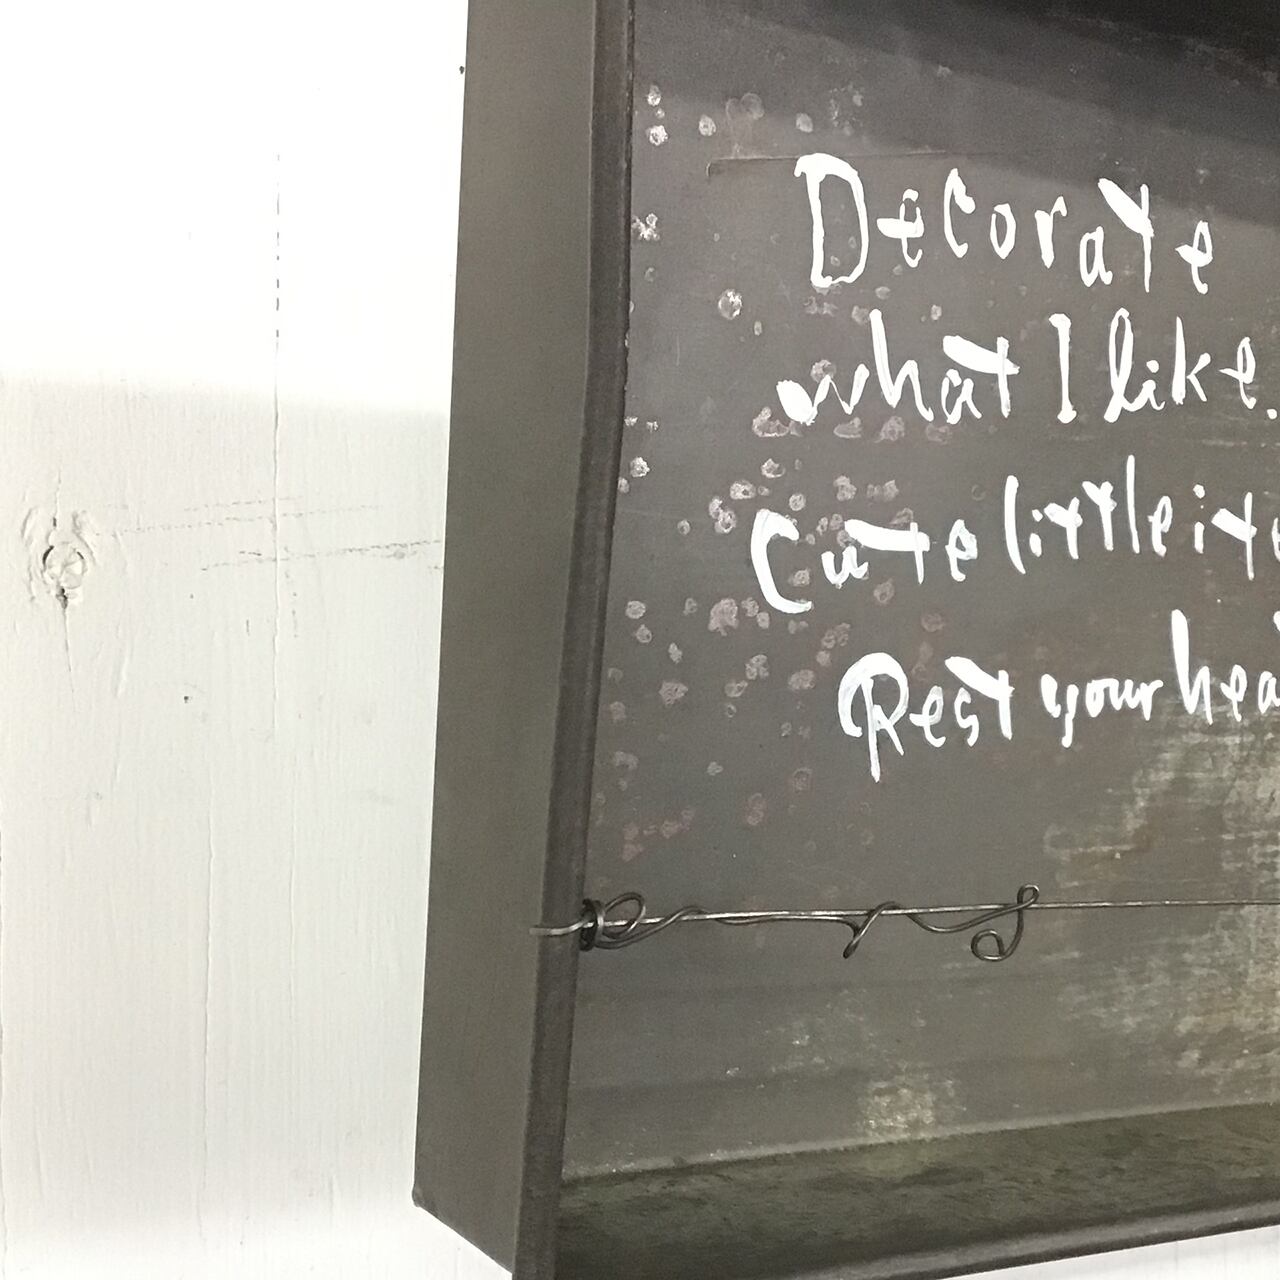 Decorate
what I like.
Cute little
Rest your